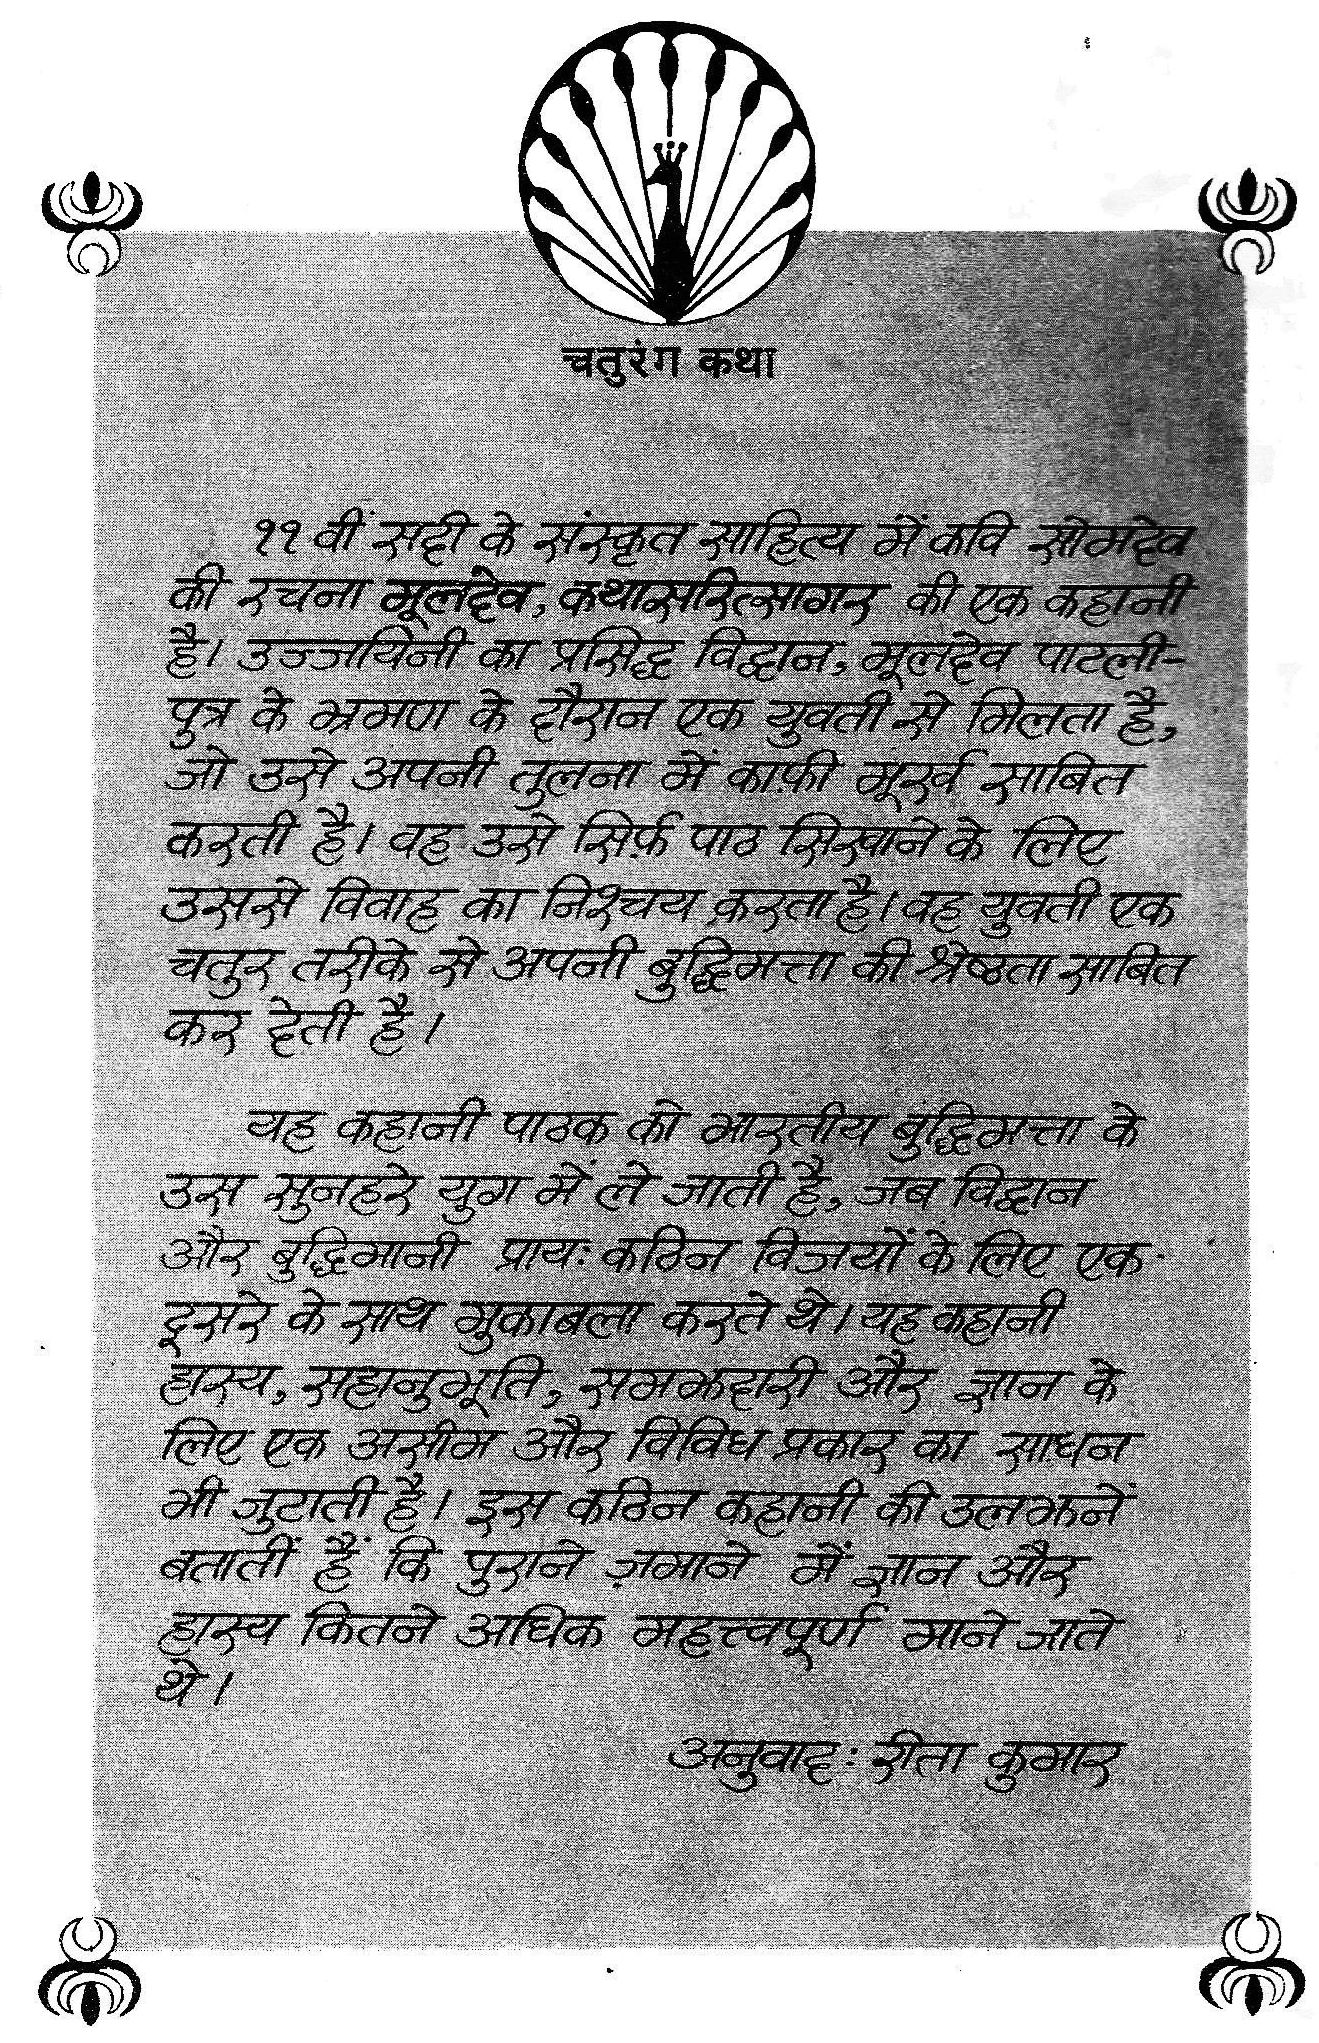 चतुरंग कथा
११वीं सदी के संस्कृत साहित्य में कवि सोमदेव
की रचना मूलदेव, कथासरित्सागर की एक कहानी
है। उज्जयिनी का प्रसिद्ध विद्वान, मूलदेव पाटली-
पुत्र के भ्रमण के दौरान एक युवती से मिलता है,
जो उसे अपनी तुलना में काफ़ी मूर्ख साबित
करती है। वह उसे सिर्फ़ पाठ सिखाने के लिए
उससे विवाह का निश्चय करता है। वह युवती एक
चतुर तरीके से अपनी बुद्धिमत्ता की श्रेष्ठता साबित
कर देती है।
यह कहानी पाठक को भारतीय बुद्धिमत्ता के
उस सुनहरे युग में ले जाती है, जब विद्वान
और बुद्धिमानी प्रायः कठिन विजयों के लिए एक
दूसरे के साथ मुकाबला करते थे। यह कहानी
हास्य, सहानुभूति, समझदारी और ज्ञान के
लिए एक असीम और विविध प्रकार का साधन
भी जुटाती है। इस कठिन कहानी की उलझनें
बतातीं हैं कि पुराने ज़माने में ज्ञान और
हास्य कितने अधिक महत्त्वपूर्ण माने जाते
थे।
अनुवाद: रीता कुमार